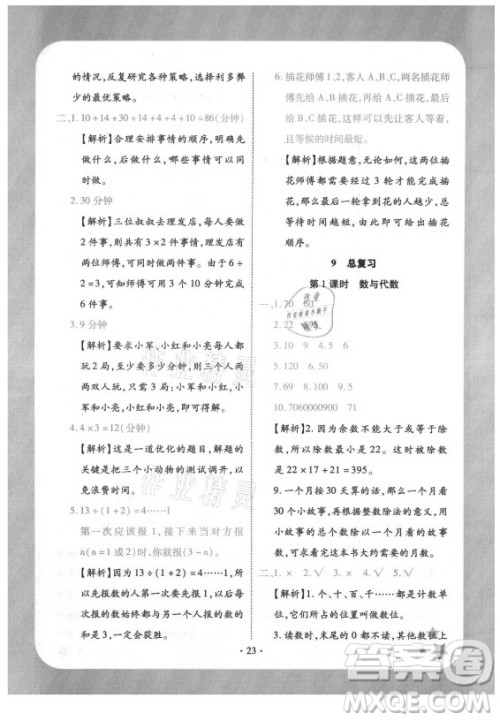 的情况,反复研究各种策略,找到利多弊
少的最优策略。
二、1. 10+14+30+14+10+86(分钟)
【解析】合理安排事情的顺序,明确先
做什么,后做什么,哪些事情可以同
时做。
2. 30 分钟
【解析】三位叔叔去理发店,每人要做
2 件事,则共有 6 件事,而理发店里有
两位师傅,可以同时进行。由于 6÷
2=3,可知师傅可用 3 个 10 分钟来
完成。
3. 9 分钟
【解析】要求小军、小红和小亮,每人都
玩 2 局,至少要多少分钟,则三个人两
两双人玩,即小军和小红、小红和小
亮、小军和小亮,即可求得解。
4. 4×3=12(分钟)
【解析】这是一道优化的题目,解题的
关键是把三个小动物的测试调开,以
免浪费时间。
5. 13÷(1+2)=4……1
第一次应该报 1,接下来当对方报
n(n=1 或2)时,你可报(3-n)。
【解析】因为 13÷(1+2)=4……1,所
以先报数的人报 1,然后先报数的人报
的数始终都与另一个人报的数的和
是 3,一定会获胜。
6. 插花师傅 1、2,客人 A、B、C,两名插花师
傅先给 A、B 插花,再给 A、C 插花,最后
给 B、C 插花,这样可以先让客人 A 完成,
且等候的时间最短。
【解析】根据题意,无论先给谁插花,插
花师傅都需要经过 3 轮才能完成插
花,但是最后一轮剩的花的人越少,总
等待时间越短,由此即可得出插花
顺序。
9 总复习
第 1 课时 数与代数
一、1. 70 60
2. 22
3. 9 10 9 4. 5
5. 120 6. 115
7. 9.50 8. 89
10. 7060000900 11. 3
【解析】因为余数不能大于或等于除
数,所以除数最小是 22。这时被除数
是 22×17+21=395。
9. 一个月按 30 天算的话,一个月看
30 个小故事,再根据整数除法的意义
求出看完这本书大约需要几个月。
二、1. × 2. √ 3. × 4. √ 5. √
【解析】1. 个、十、百、千……都是计数单
位,它们所占的位置叫做数位。
3. 读数时,末尾的 0 都不读,其他数位上
· 23 ·
作业精灵
作业精灵
答案圈
MXQE.COM